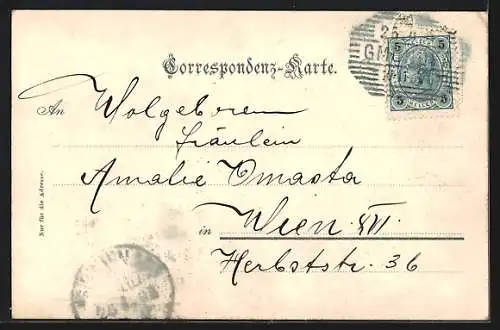 Correspondenz-Karte.
An Wolgeboren
Fräulein
Amalie Omasta
in Wien XVI.
Herbststr. 36
Nur für die Adresse.
25
GM
5 5
5 5
HELLER